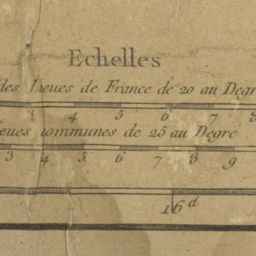 Echelles
des Lieues de France de 20 au Degr
3 4 5 6 7 8
eues communes de 25 au Degré
3 4 5 6 7 8 9
16 d